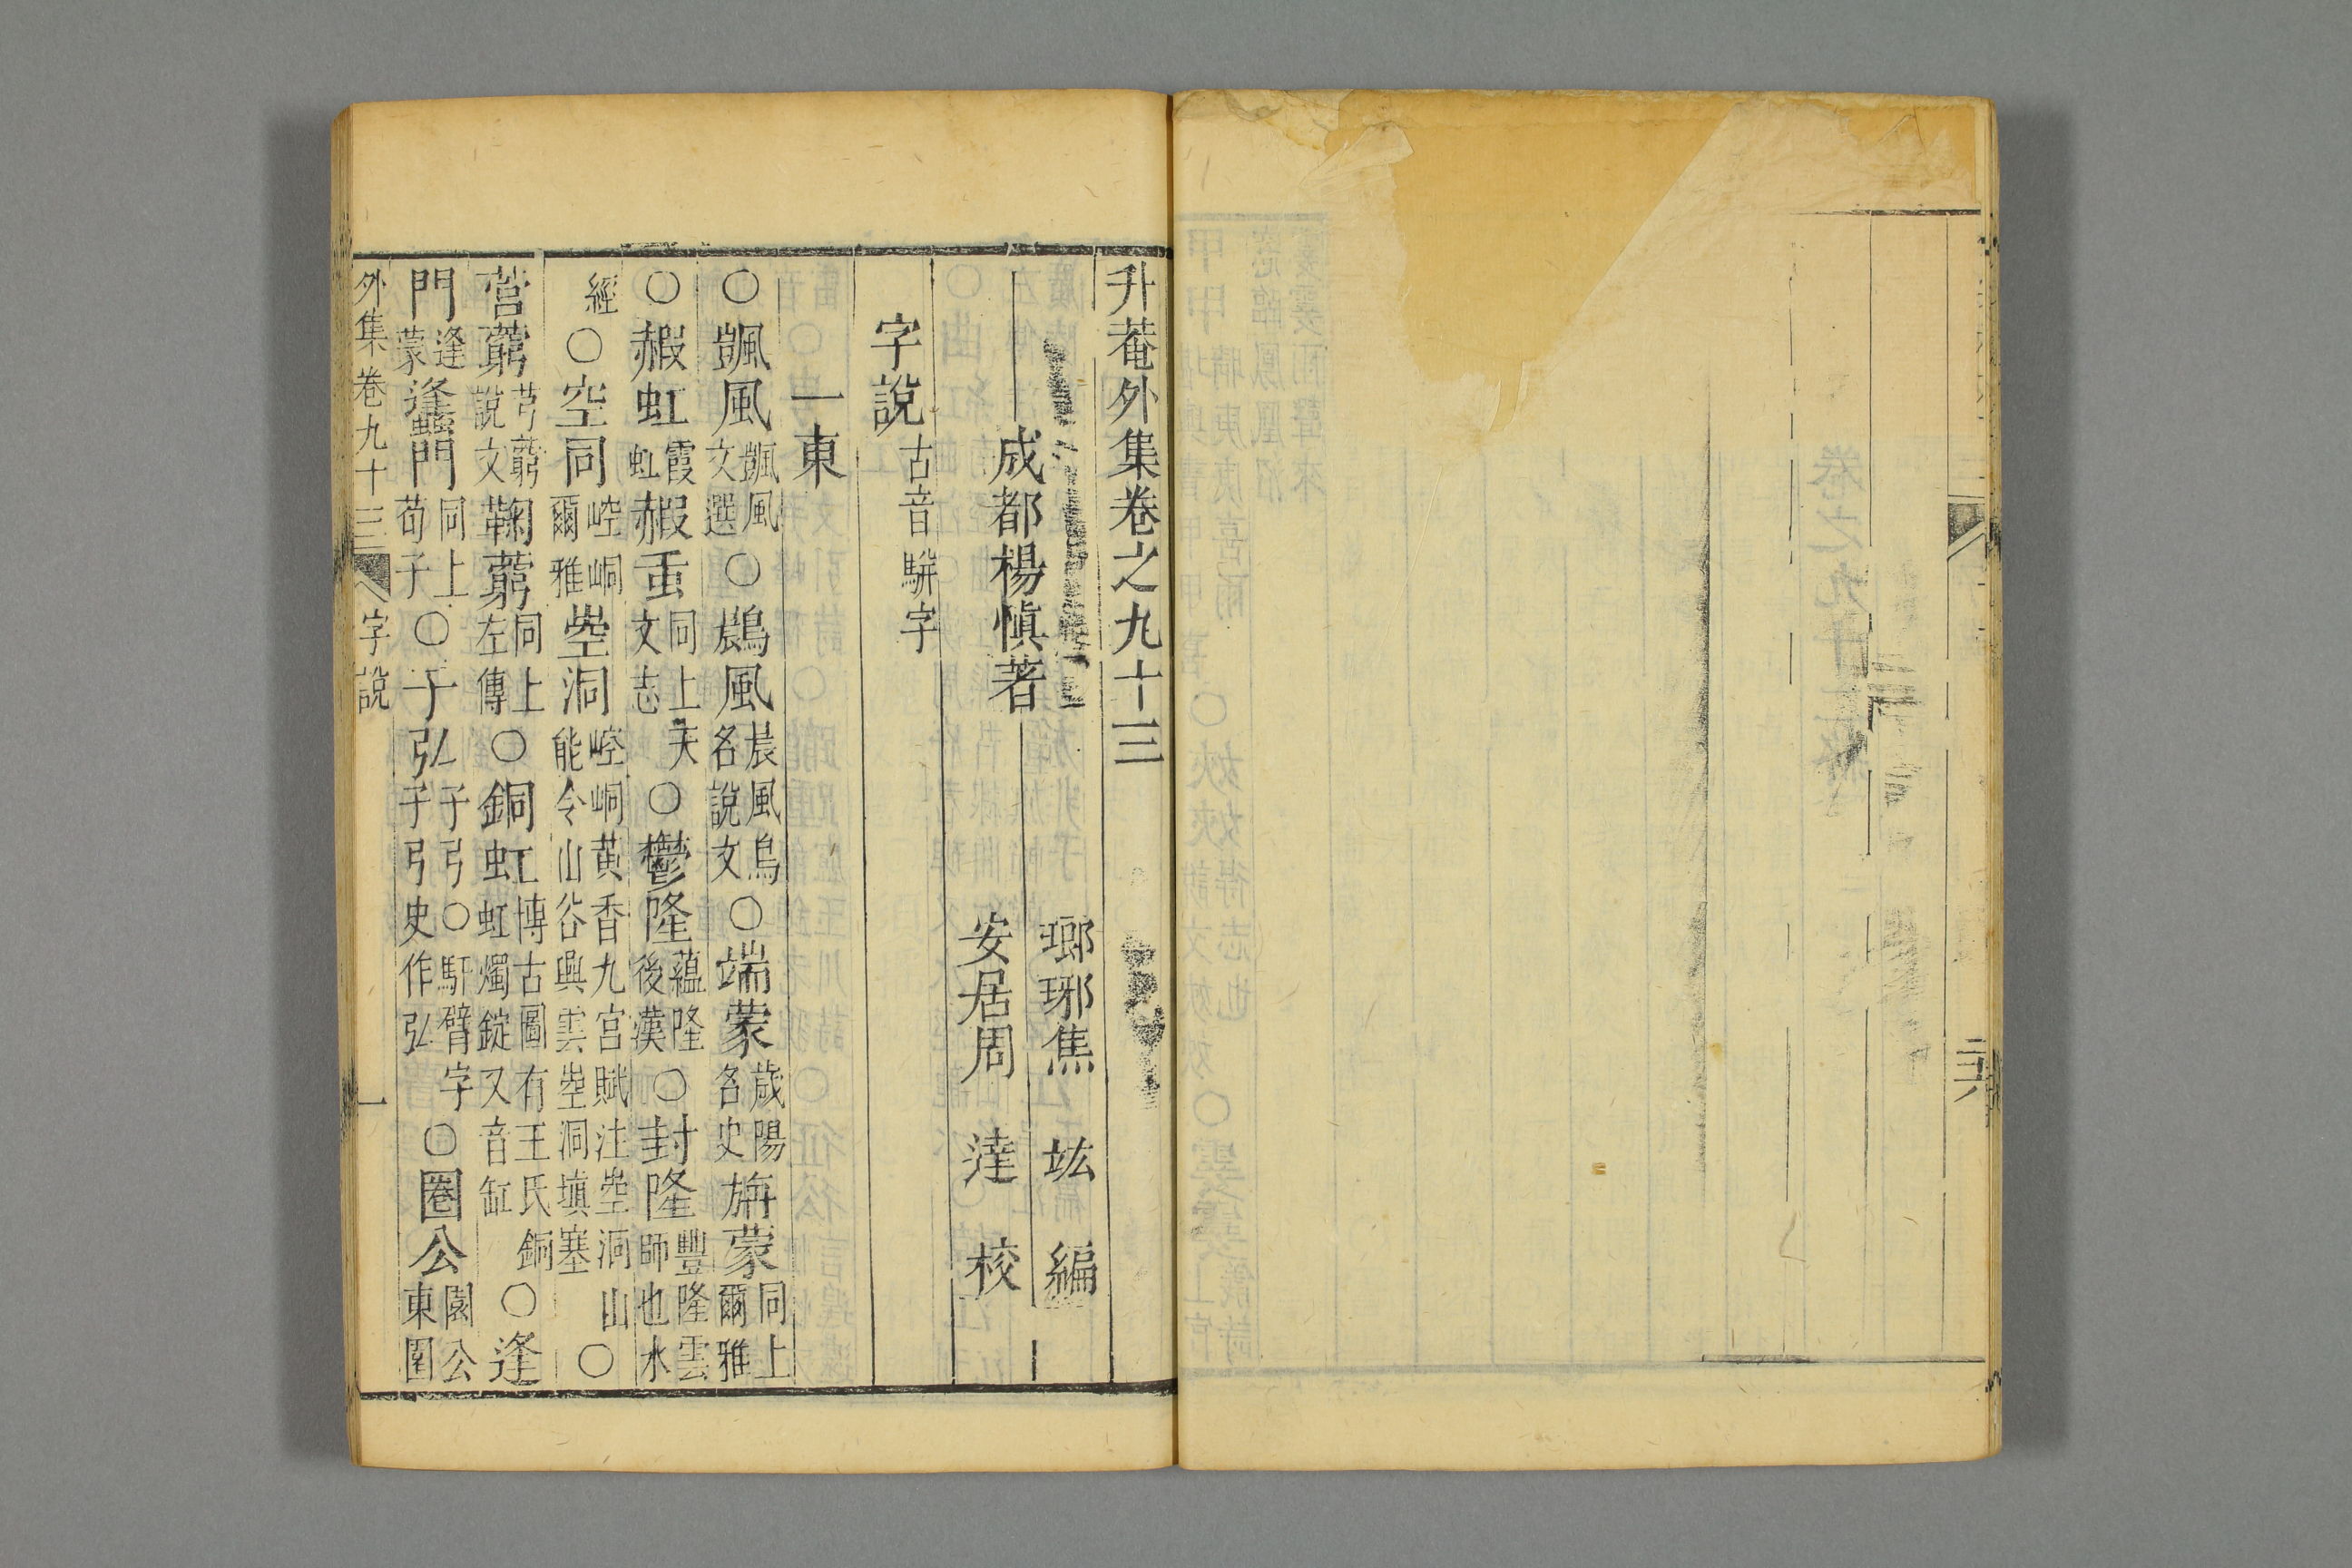 二六
升菴外集卷之九十三
瑯琊焦 竑 編
成都楊慎著
安居周 達 校
字說 古音駢字
一東
○颽風 颽風文選 ○鷐風 晨風鳥名說文 ○端蒙 歲陽名史 旃蒙 同上爾雅
○赮虹 霞虹 赮䖝 同上天文志 ○鬱隆 蘊隆後漢 ○封隆 豐隆雲師也水
經 ○空同 崆峒爾雅 㟅洞 崆峒黃香九宮賦注㟅洞山能令山谷興雲㟅洞填塞 ○
营藭 芎藭說文 鞠藭 同上左傳 ○銅虹 博古圖有王氏銅虹燭錠又音缸 ○逢
門 逢蒙 蠭門 同上荀子 ○子弘 子弓○馯臂字子弓史作弘 ○圈公 園公東園
外集卷九十三 字說 一